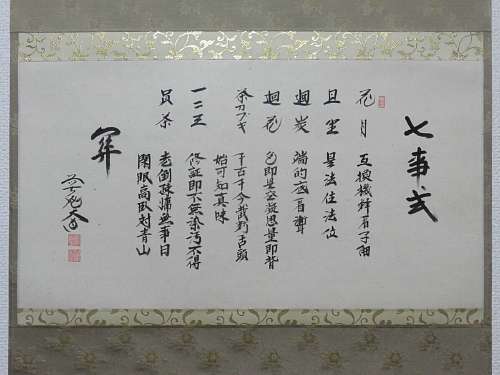 七事式
花月 互換機鋒看子細
且坐 是法住法位
廻炭 端的底看聻
廻花 色即是空凝思量即背
茶カブキ 于古于今截断舌頭
始可知真味
一二三 修証即不無染汚不得
員茶 老倒疎慵無事日
閑眠高臥対青山